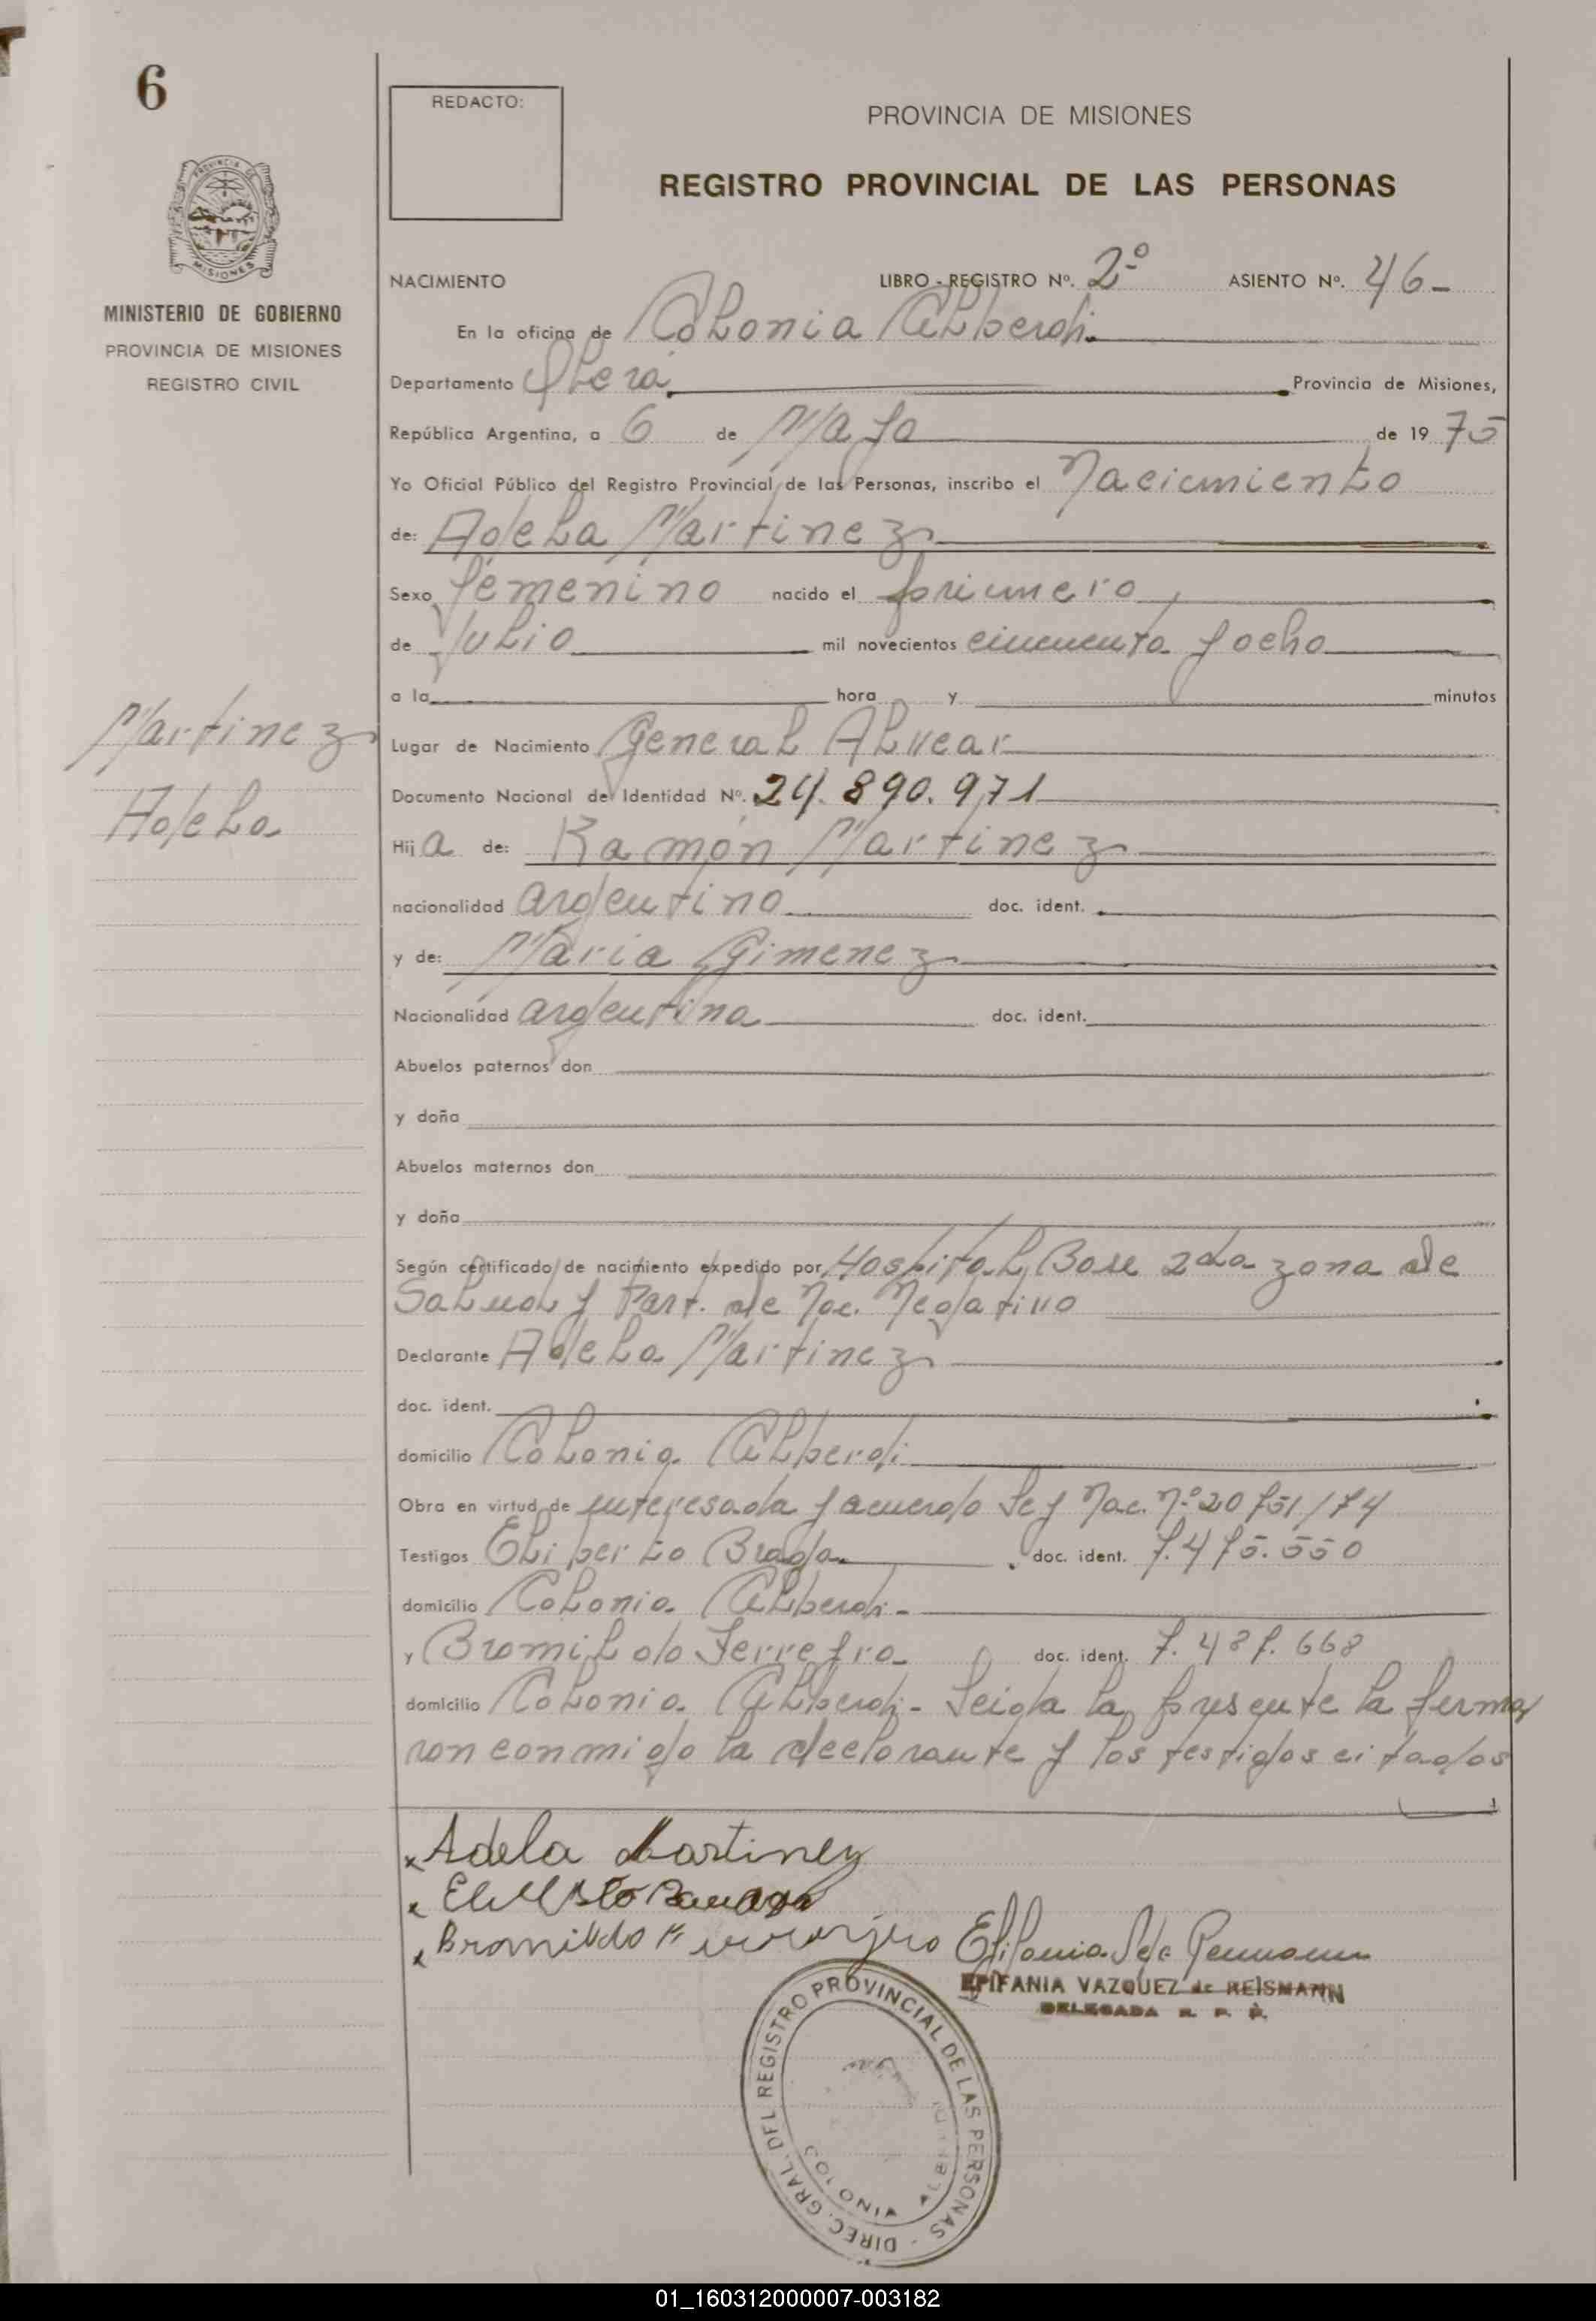 6
REDACTO:
PROVINCIA DE MISIONES
REGISTRO PROVINCIAL DE LAS PERSONAS
PROVINCIA DE
MISIONES
MINISTERIO DE GOBIERNO
PROVINCIA DE MISIONES
REGISTRO CIVIL
NACIMIENTO LIBRO - REGISTRO Nº. 2º ASIENTO Nº. 46-
En la oficina de Colonia Alberdi
Departamento Oberá Provincia de Misiones,
República Argentina, a 6 de Mayo de 1975
Yo Oficial Público del Registro Provincial de las Personas, inscribo el Naciemiento
de: Adela Martinez
Sexo femenino nacido el primero
de Julio mil novecientos cincuenta y ocho
a la hora y minutos
Martinez
Adela
Lugar de Nacimiento General Alvear
Documento Nacional de Identidad Nº. 24.890.971
Hija de: Ramón Martinez
nacionalidad argentino doc. ident.
y de: Maria Gimenez
Nacionalidad argentina doc. ident.
Abuelos paternos don
y doña
Abuelos maternos don
y doña
Según certificado de nacimiento expedido por Hospital Base 2da zona de
Salud y Part. de Nac. Negativo
Declarante Adela Martinez
doc. ident.
domicilio Colonia Alberdi
Obra en virtud de interesada y acuerdo Ley Nac. Nº 20751/74
Testigos Eliberto Braga doc. ident. 7.475.550
domicilio Colonia Alberdi-
y Bromildo Ferreyra doc. ident. 7.487.668
domicilio Colonia Alberdi- Leida la presente la firma
ron conmigo la declarante y los testigos citados
x Adela Martinez
x
x Bromildo
EPIFANIA VAZQUEZ de REISMANN
DELEGADA R. P. P.
DIREC. GRAL. DEL REGISTRO PROVINCIAL DE LAS PERSONAS
01_160312000007-003182